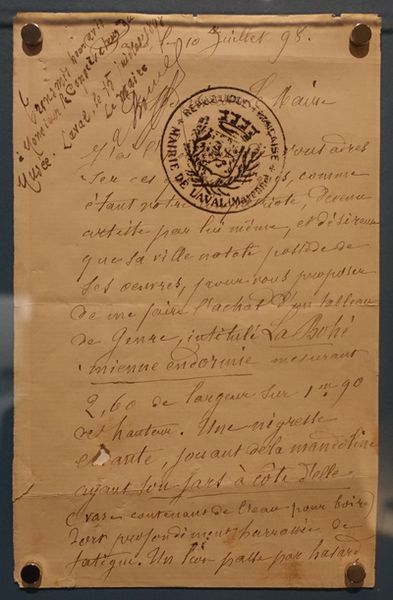 le 10 Juillet 98.
Transmis
à Monsieur le Conservateur du
Musée. Laval, le 15 Juillet 1898
Le Maire
le Maire
RÉPUBLIQUE FRANÇAISE
MAIRIE DE LAVAL (Mayenne)
J'ai vous adres
ser ces comme
étant votre devenu
artiste par lui même, et désireux
que sa ville natale possède de
ses oeuvres, pour vous proposer
de me faire l'achat d'un tableau
de Genre, intitulé La Bohé
mienne endormie mesurant
2,60 de largeur sur 1m 90
de hauteur. Une négresse
errante, jouant de la mandoline
ayant son jars à côté d'elle
(vase contenant de l'eau pour boire)
dort profondément harrassée de
fatigue. Un lion passe par hasard